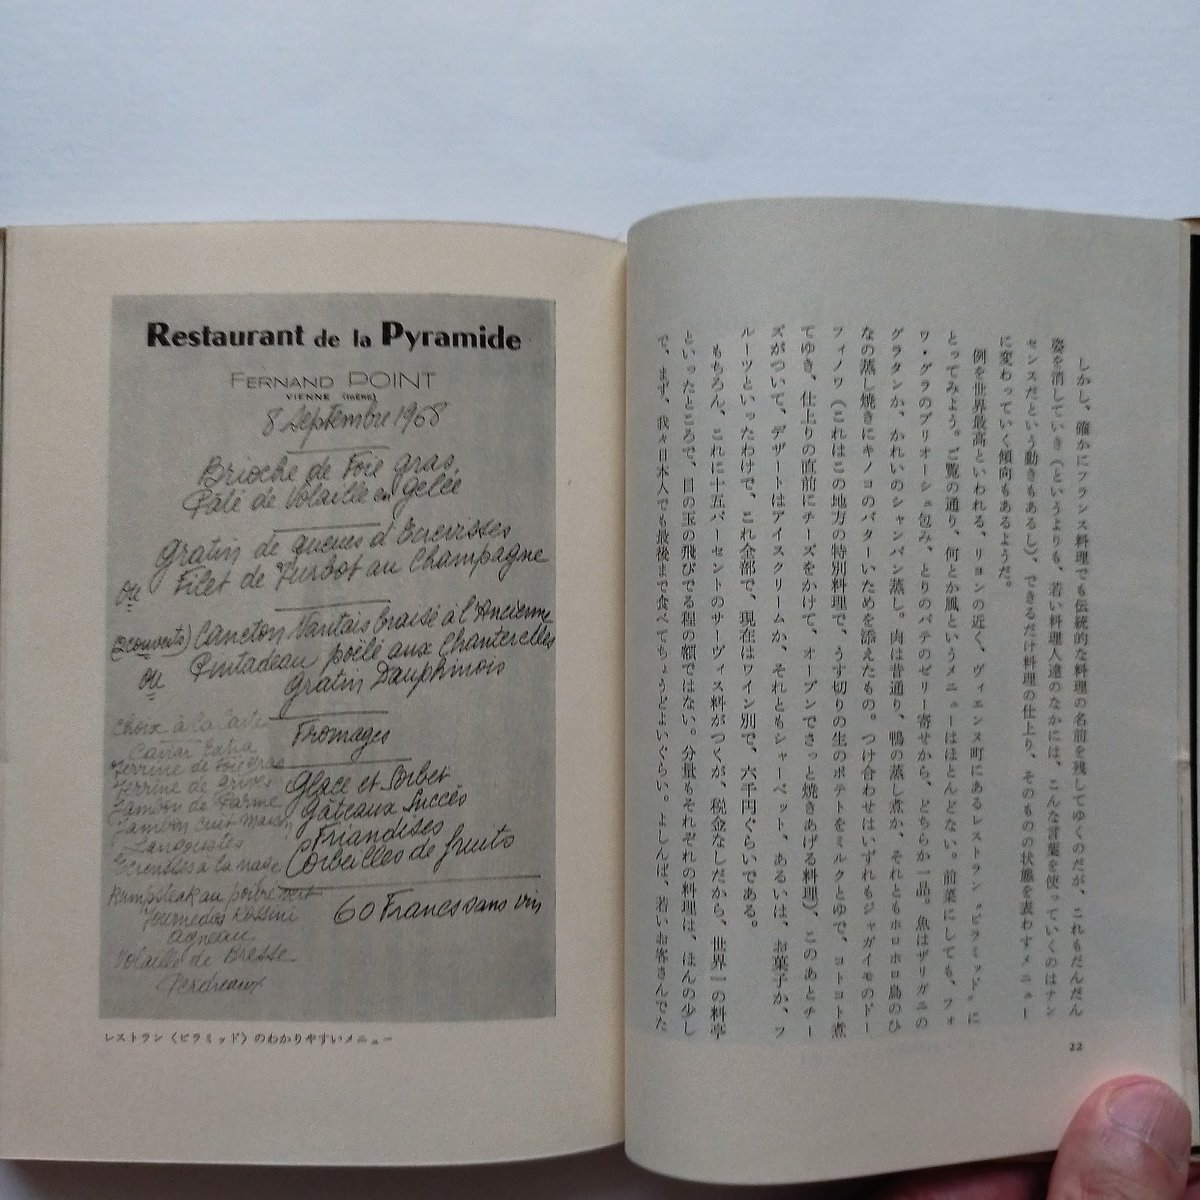 しかし、確かにフランス料理でも伝統的な料理の名前を残してゆくのだが、これもだんだん
姿を消していき（というよりも、若い料理人達のなかには、こんな言葉を使っていくのはナン
センスだという動きもあるし）、できるだけ料理の仕上り、そのものの状態を表わすメニュー
に変わっていく傾向もあるようだ。
例を世界最高といわれる、リヨンの近く、ヴィエンヌ町にあるレストラン〝ピラミッド〟に
とってみよう。ご覧の通り、何とか風というメニューはほとんどない。前菜にしても、フォ
ワ・グラのブリオーシュ包み、とりのパテのゼリー寄せから、どちらか一品。魚はザリガニの
グラタンか、かれいのシャンパン蒸し。肉は昔通り、鴨の蒸し煮か、それともホロホロ鳥のひ
なの蒸し焼きにキノコのバターいためを添えたもの。つけ合わせはいずれもジャガイモのドー
フィノワ（これはこの地方の特別料理で、うす切りの生のポテトをミルクとゆで、コトコト煮
てゆき、仕上りの直前にチーズをかけて、オーブンでさっと焼きあげる料理）、このあとチー
ズがついて、デザートはアイスクリームか、それともシャーベット、あるいは、お菓子か、フ
ルーツといったわけで、これ全部で、現在はワイン別で、六千円ぐらいである。
もちろん、これに十五パーセントのサーヴィス料がつくが、税金なしだから、世界一の料亭
といったところで、目の玉の飛びでる程の額ではない。分量もそれぞれの料理は、ほんの少し
で、まず、我々日本人でも最後まで食べてちょうどよいぐらい。よしんば、若いお客さんでた
22
Restaurant de la Pyramide
FERNAND POINT
VIENNE (ISÈRE)
8 Septembre 1968
Brioche de Foie gras,
Pâté de Volaille en gelée
Gratin de queues d'Ecrevisses
ou Filet de Turbot au Champagne
(2 couverts) Caneton Nantais braisé à l'Ancienne
ou Pintadeau poêlé aux Chanterelles
Gratin Dauphinois
Fromages
Glace et Sorbet
Gâteaux Succès
Friandises
Corbeilles de fruits
60 Francs sans vin
Choix à la Carte
Caviar Extra
Terrine de Foie Gras
Terrine de Grives
Jambon de Parme
Jambon cuit Maison
Langoustes
Ecrevisses à la nage
Rumpsteak au poivre vert
Tournedos Rossini
Agneau
Volaille de Bresse
Perdreaux
レストラン〈ピラミッド〉のわかりやすいメニュー